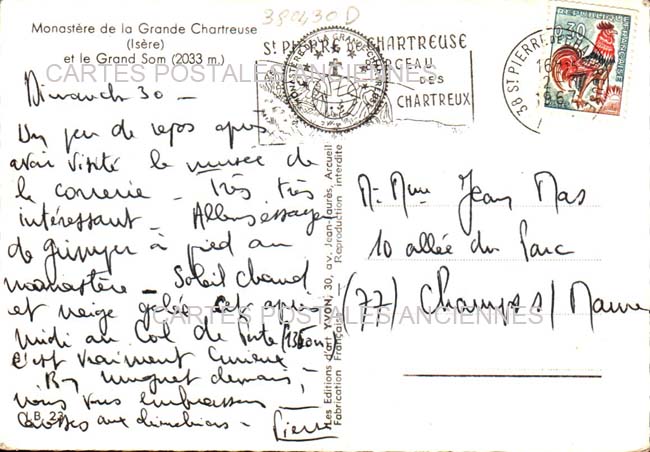 384430D
Monastère de la Grande Chartreuse
(Isère)
et le Grand Som (2033 m.)
CARTES POSTALES ANCIENNES
Dimanche 30 -
Un peu de repos après
avoir visité le musée de
la correrie - Très très
intéressant - Allons essayer
de grimper à pied au
monastère - Soleil chaud
et neige gelée cet après
midi au Col de Porte
c'est vraiment curieux
Bon muguet demain,
nous vous embrassons
Pierre
LB. 23
Les Éditions d'art YVON, 30, av. Jean-Jaurès, Arcueil
Fabrication Française - Reproduction interdite
ST PIERRE DE CHARTREUSE
BERCEAU
DES
CHARTREUX
38 ST PIERRE DE CHARTREUSE
16
0,30
M. Mme Jean Mas
10 allée du Parc
(77) Champs s/ Marne
CARTES POSTALES ANCIENNES